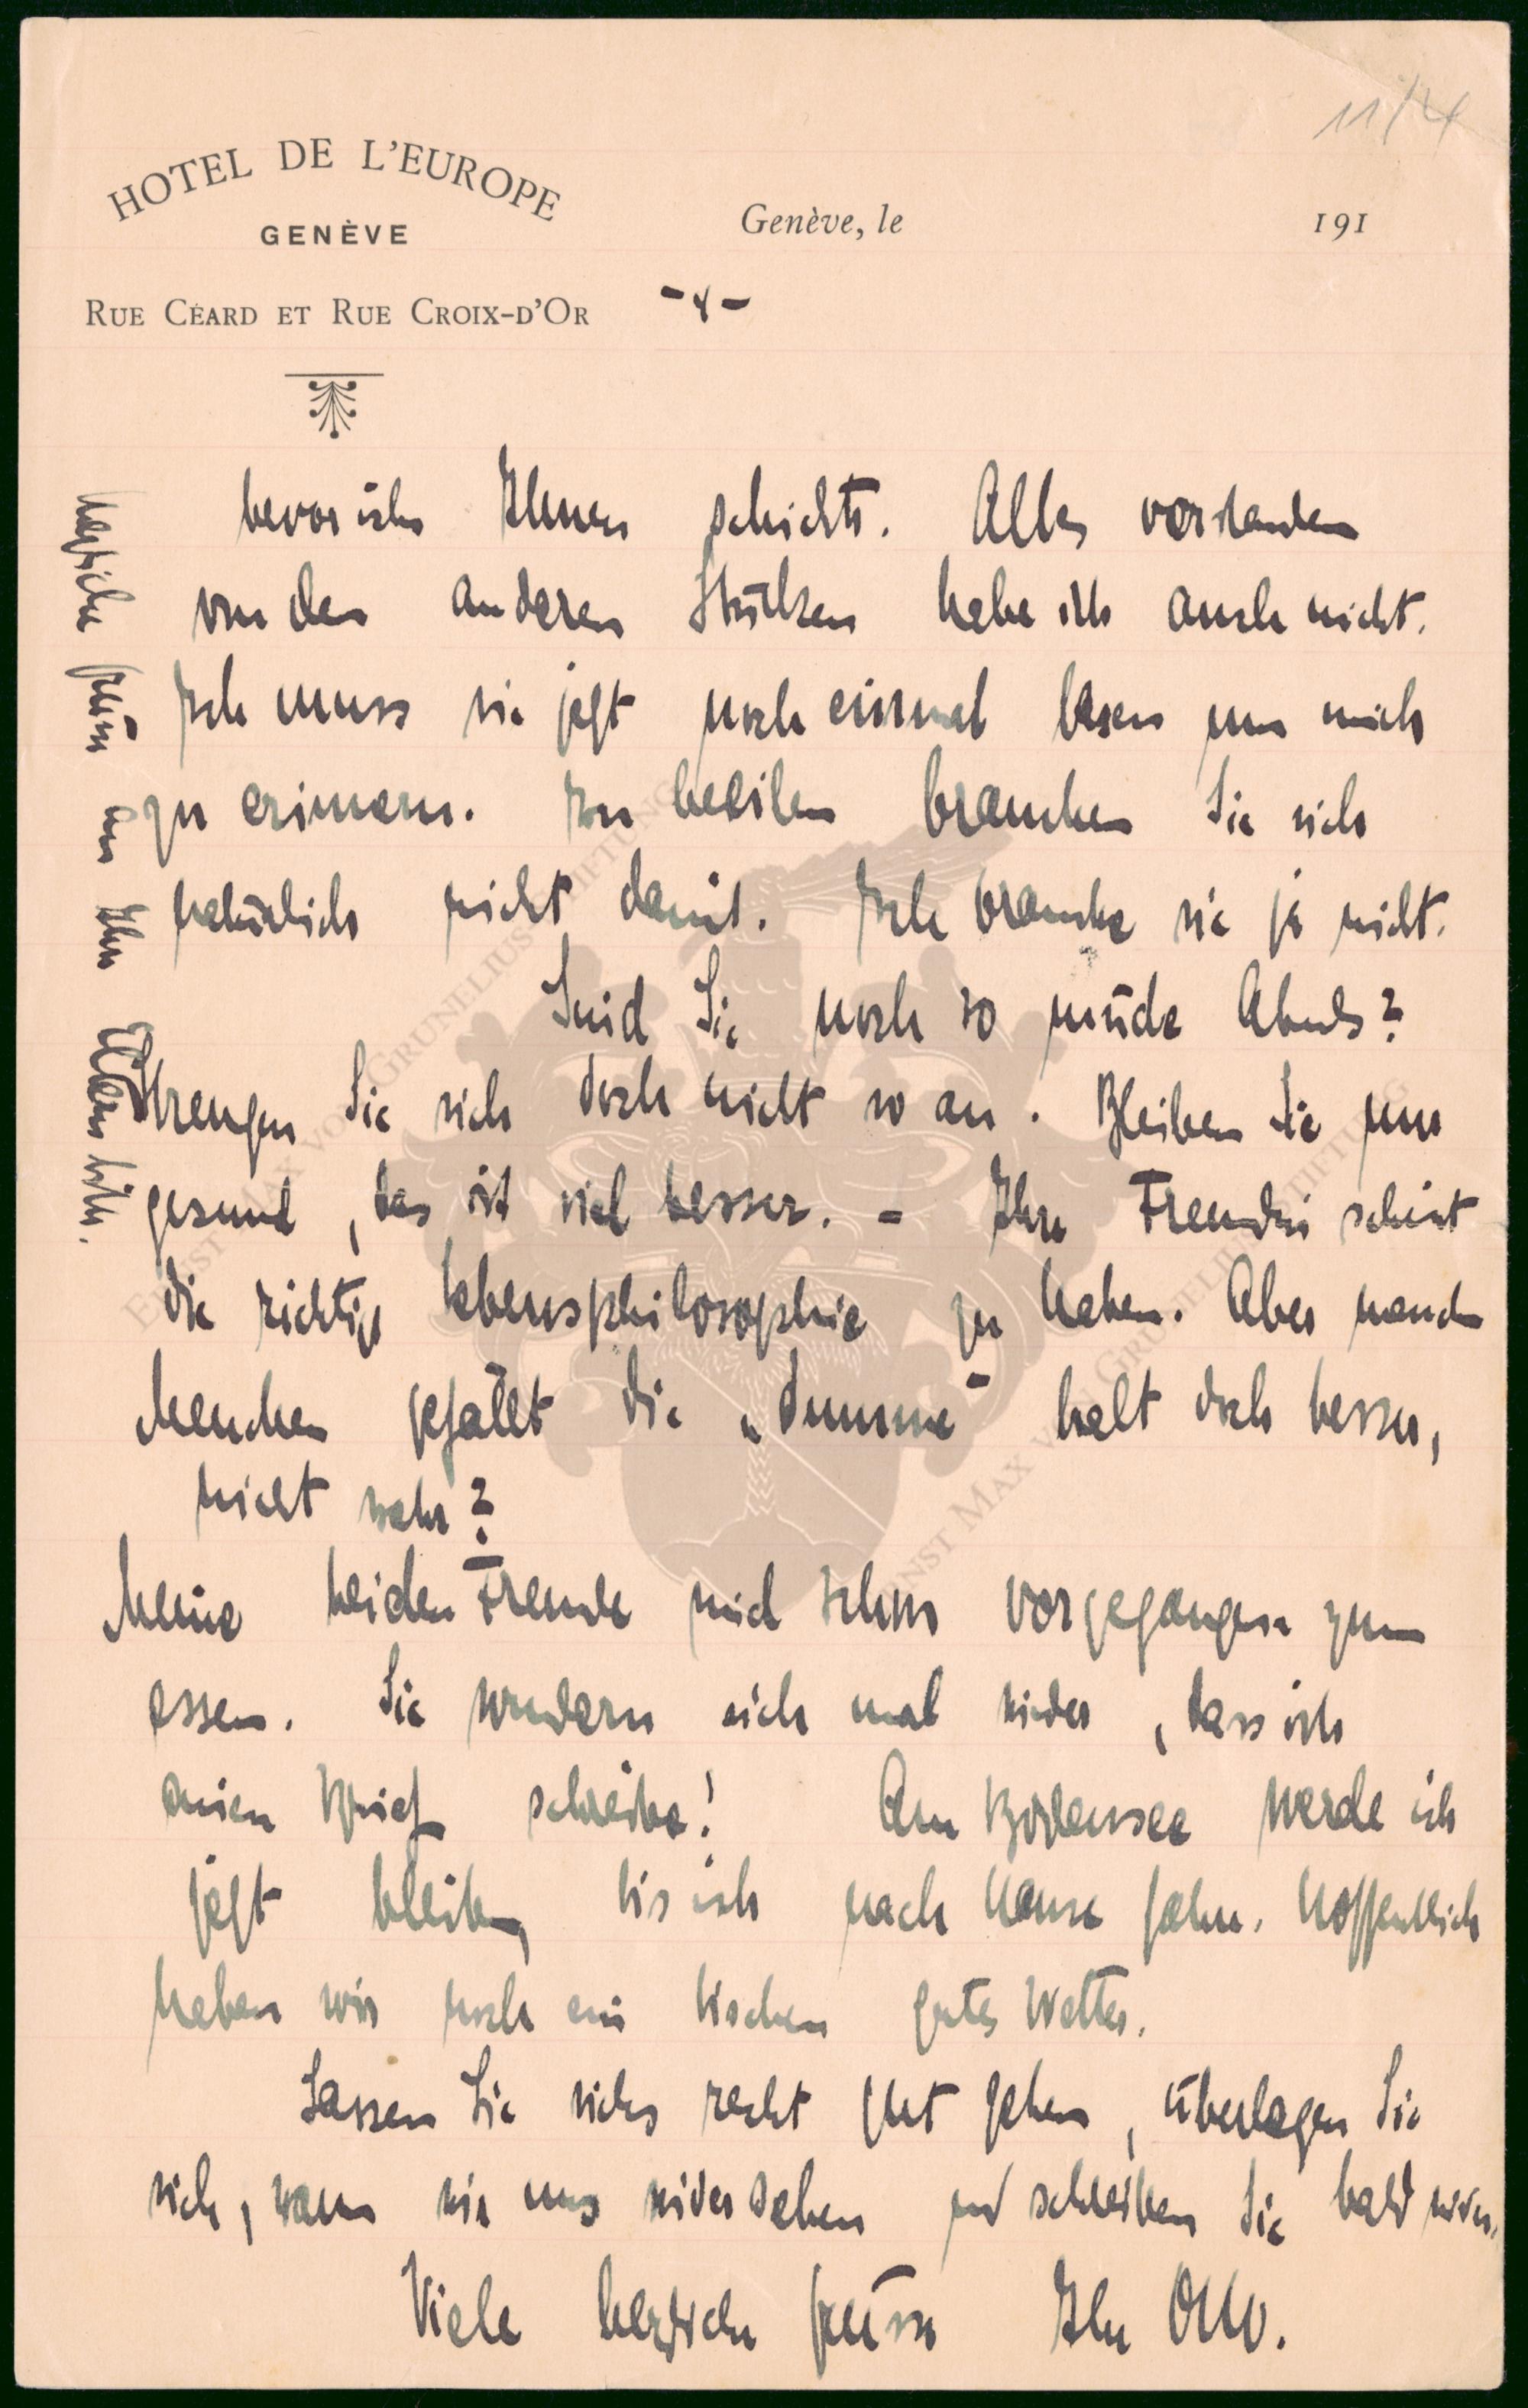 11/4
HOTEL DE L'EUROPE
GENÈVE
RUE CÉARD ET RUE CROIX-D'OR
Genève, le 191
-4-
bevor ichs Ihnen schickte. Alles verstanden
von den anderen Stücken habe ich auch nicht.
Ich muss sie jetzt noch einmal lesen um mich
zu erinnern. Zu beeilen brauchen Sie sich
natürlich nicht damit. Ich brauche sie ja nicht.
Sind Sie noch so müde Abends?
Strengen Sie sich doch nicht so an. Bleiben Sie nur
gesund, das ist viel besser. - Ihre Freundin scheint
die richtige Lebensphilosophie zu haben. Aber manchen
Menschen gefällt die „dumme" halt doch besser,
nicht wahr?
Meine beiden Freunde sind schon vorgegangen zum
essen. Sie wundern sich mal wieder, dass ich
einen Brief schreibe! Am Bodensee werde ich
jetzt bleiben, bis ich nach Hause fahre. Hoffentlich
haben wir noch ein bischen gutes Wetter.
Lassen Sie sichs recht gut gehen, überlegen Sie
sich, wann wir uns wiedersehen und schreiben Sie bald wieder.
Viele herzliche Grüsse Ihr Otto.
herzliche Grüsse an Ihre Eltern bitte.
ERNST MAX VON GRUNELIUS-STIFTUNG
ERNST MAX VON GRUNELIUS-STIFTUNG